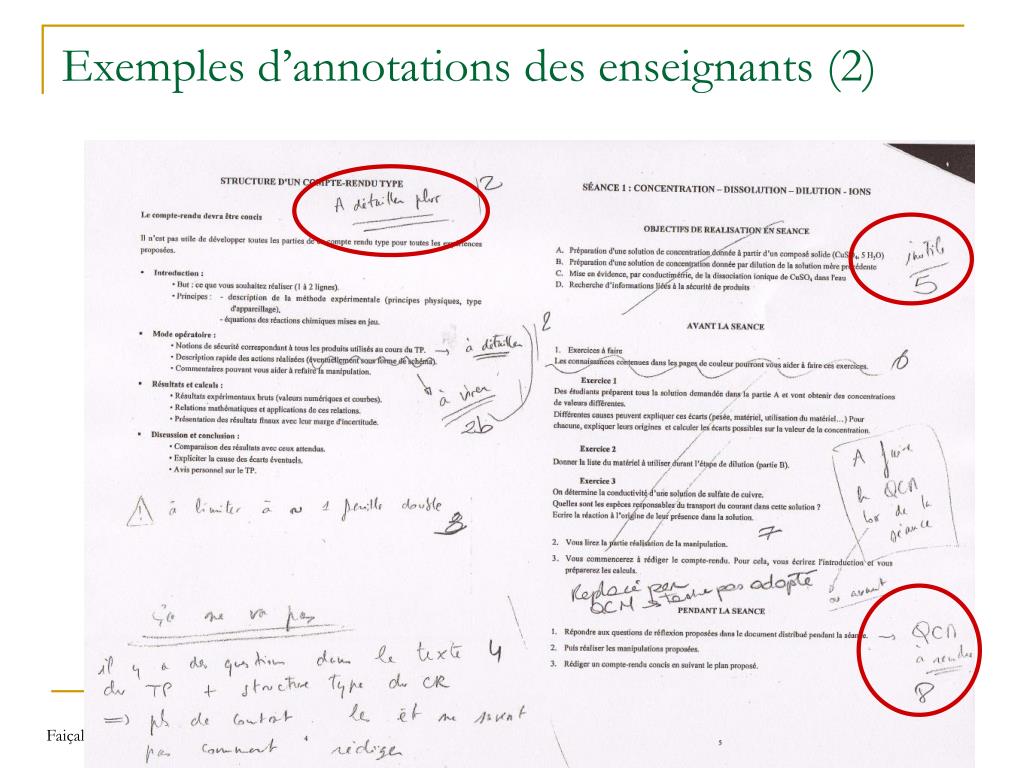 Exemples d’annotations des enseignants (2)
STRUCTURE D'UN COMPTE-RENDU TYPE
A détailler plus
2
Le compte-rendu devra être concis
Il n'est pas utile de développer toutes les parties de un compte rendu type pour toutes les expériences
proposées.
• Introduction :
• But : ce que vous souhaitez réaliser (1 à 2 lignes).
• Principes : - description de la méthode expérimentale (principes physiques, type
d'appareillage),
- équations des réactions chimiques mises en jeu.
• Mode opératoire :
2
• Notions de sécurité correspondant à tous les produits utilisés au cours du TP. → à détailler
• Description rapide des actions réalisées (éventuellement sous forme de schéma).
• Commentaires pouvant vous aider à refaire la manipulation.
à virer
2b
• Résultats et calculs :
• Résultats expérimentaux bruts (valeurs numériques et courbes).
• Relations mathématiques et applications de ces relations.
• Présentation des résultats finaux avec leur marge d'incertitude.
• Discussion et conclusion :
• Comparaison des résultats avec ceux attendus.
• Expliciter la cause des écarts éventuels.
• Avis personnel sur le TP.
! à limiter à ~ 1 feuille double
3
ça ne va pas
il y a des questions dans le texte 4
du TP + structure type du CR
=> pb de contrat . les ét ne savent
pas comment rédiger
4
SÉANCE 1 : CONCENTRATION – DISSOLUTION – DILUTION - IONS
OBJECTIFS DE REALISATION EN SEANCE
A. Préparation d'une solution de concentration donnée à partir d'un composé solide (CuSO₄, 5 H₂O)
B. Préparation d'une solution de concentration donnée par dilution de la solution mère précédente
C. Mise en évidence, par conductimétrie, de la dissociation ionique de CuSO₄ dans l'eau
D. Recherche d'informations liées à la sécurité de produits
inutile
5
AVANT LA SEANCE
1. Exercices à faire
Les connaissances contenues dans les pages de couleur pourront vous aider à faire ces exercices.
6
Exercice 1
Des étudiants préparent tous la solution demandée dans la partie A et vont obtenir des concentrations
de valeurs différentes.
Différentes causes peuvent expliquer ces écarts (pesée, matériel, utilisation du matériel…) Pour
chacune, expliquer leurs origines et calculer les écarts possibles sur la valeur de la concentration.
Exercice 2
Donner la liste du matériel à utiliser durant l'étape de dilution (partie B).
Exercice 3
On détermine la conductivité d'une solution de sulfate de cuivre.
Quelles sont les espèces responsables du transport du courant dans cette solution ?
Ecrire la réaction à l'origine de leur présence dans la solution.
A faire
QCM
lor de la
séance
7
2. Vous lirez la partie réalisation de la manipulation.
3. Vous commencerez à rédiger le compte-rendu. Pour cela, vous écrirez l'introduction et vous
préparerez les calculs.
ou avant
Replacé par
QCM → tache pas adopté
PENDANT LA SEANCE
1. Répondre aux questions de réflexion proposées dans le document distribué pendant la séance.
2. Puis réaliser les manipulations proposées.
3. Rédiger un compte-rendu concis en suivant le plan proposé.
→ QCM
à rendre
8
5
Faiçal